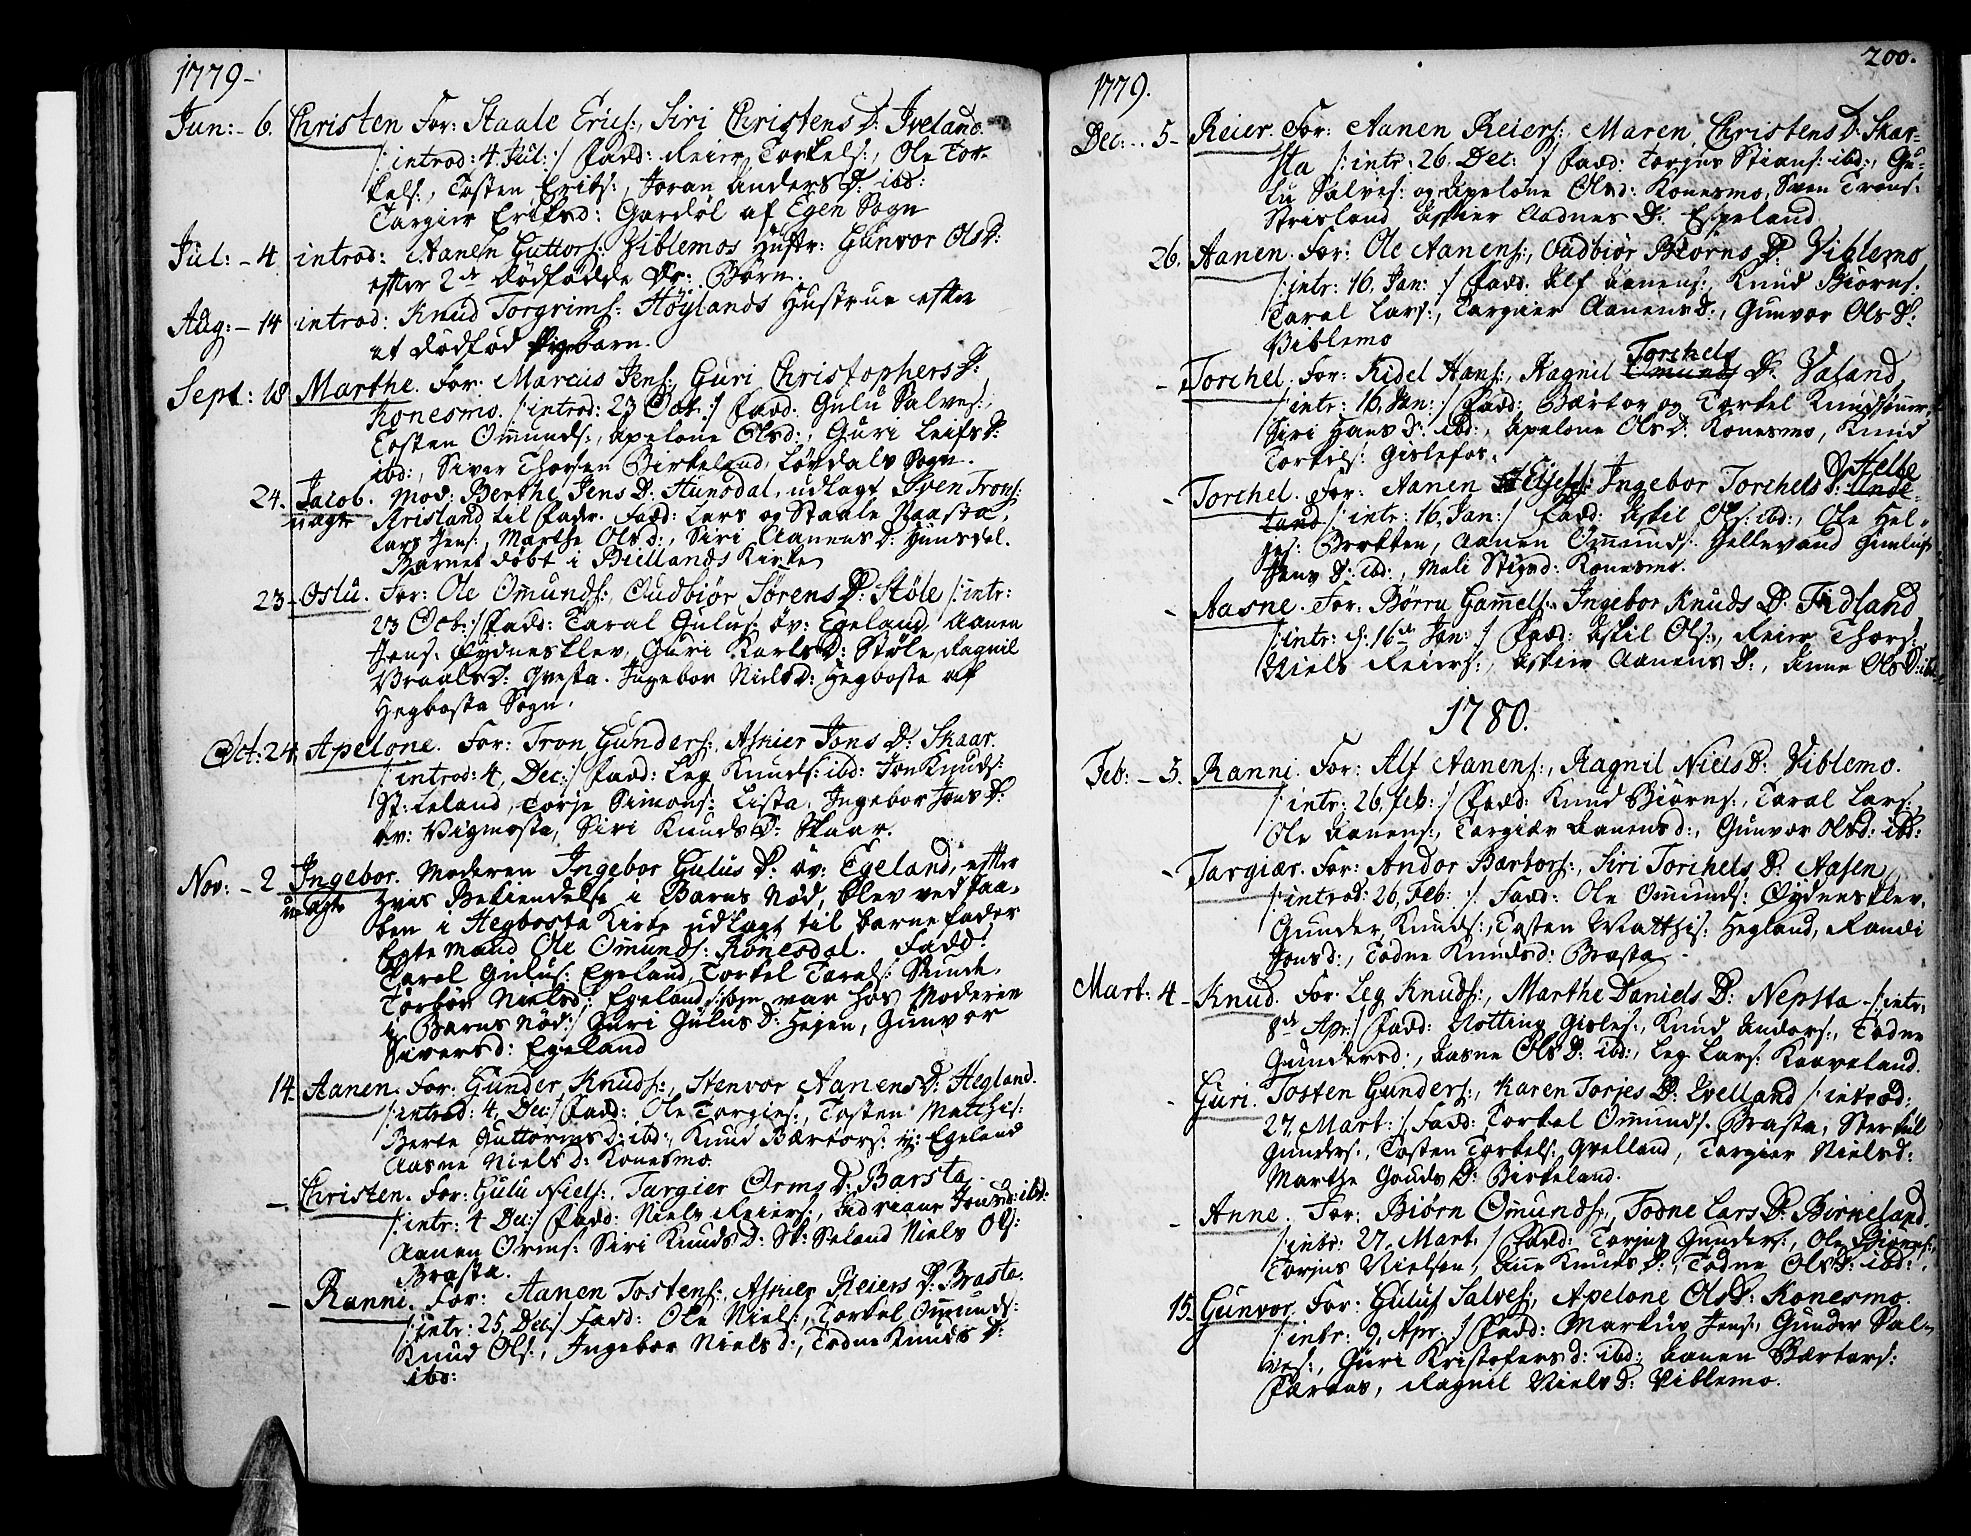 1779-
Jun: - 6. Christen For: Staale Erics:, Siri Christens D: Iveland.
/: introd: 4. Jul: :/ Fadd: Reier Torkels:, Ole Tor-
kels:, Tosten Eriks:, Joran Anders D: ibd:
Targier Eriksd: Gardøl af Egen Sogn
Jul: - 4 introd: Aanen Guttors: Viblemos Hustr: Gunvor Ols D:
efter 2de dødfødde Dr: Børn.
Aug: - 14 introd: Knud Torgrims: Høylands Hustrue efter
et dødfød Pigebarn.
Sept: 18 Marthe. For: Marcus Jens:, Guri Christophers D:
Konesmo. /: introd: 23 Oct: :/ Fadd: Gulu Salves:,
Tosten Omunds:, Apelone Olsd:, Guri Leifs D:
ibd:, Siver Thorsen Birkeland, Løvdals Sogn.
24. Jacob. Mod: Berthe Jens D: Hunsdal, udlagt Sven Trons:
uægte Strisland til Fader. Fadd: Lars og Staale Raasta,
Lars Jens:, Marthe Olsd:, Siri Aanens D: Hunsdal.
Barnet døbt i Biellands Kirke
23 - Oslu. For: Ole Omunds:, Oudbiør Sørens D: Støle /: intr:
23 Oct: :/ Fadd: Taral Gulus: øv: Egeland, Aanen
Jens: Øydneskley, Guri Karls D: Støle, Ragnil
Braals D: Qvesta. Ingebor Nielsd: Hegbostе af
Hegbosta Sogn.
Oct: 24. Apelone. For: Tron Gunders:, Askier Jons D: Skaar.
/: introd: 4, Dec: :/ Fadd: Leg Knuds: ibd: Jon Knuds:
St: Leland, Torje Simons: Lista, Ingebor Jons D:
øv: Vigmosta, Siri Knuds D: Skaar.
Nov: - 2 Ingebor. Moderen Ingebor Gulus D: øv: Egeland, efter
uægte hvis Bekiendelse i Barns Nød, blev ved Daa-
ben i Hegbosta Kirke udlagt til barnefader
Egte Mand Ole Omunds: Konesdal. Fadd:
Taral Gulus: Egeland, Torkel Tarals: Skunde,
Torbør Nielsd: Egeland /: som var hos Moderen
i Barns Nød :/ Guri Gulus D: Heien, Gunvor
Siversd: Egeland
14. Aanen. For: Gunder Knuds:, Stenvor Aanens D: Hegland.
/: introd: 4, Dec: :/ Fadd: Ole Torgies:, Tosten Matthis:
Berte Guttorms D: ibd:, Knud Bærtors: y: Egeland
Aasne Niels D: Konesmo.
- Christen. For: Gulu Niels:, Targier Orms D: Barsta.
/: intr: 4 Dec: :/ Fadd: Niels Reiers:, Adriane Jonsd: ibd:
Aanen Orms: Siri Knuds D: St: Seland Niels Ols:
Brasta.
- Ranni. For: Aanen Tostens:, Askier Reiers D: Brasta.
/: intr: 25, Dec: :/ Fadd: Ole Niels:, Torkel Omunds:
Knud Ols:, Ingebor Niels d:, Todne Knuds D:
ibd:
200.
1779.
Dec: - 5 - Reier. For: Aanen Reiers:, Maren Christens D: Skar-
sta /: intr: 26. Dec: :/ Fadd: Torjus Stians: ibd:, Gu-
lu Salves: og Apelone Olsd: Konesmo, Sven Trons:
Strisland, Askier Aadnes D: Egeland
26. Aanen. For: Ole Aanens:, Oudbiør Biørns D: Viblemo
/: intr: 16, Jan: :/ Fadd. Alf Aanens:, Knud Biørns.
Taral Lars:, Targier Aanens D:, Gunvor Ols D:
Viblemo
Torchels
- Torchel. For: Ridel Hans:, Ragnil Omunds D: Valand,
/: intr: 16, Jan: :/ Fadd: Bærtor og Torkel Knudsønner,
Siri Hans D: ibd:, Apelone Ols D: Konesmo, Knud
Torkels: Gislefos.
- Torchel. For: Aanen Eljes: Ingebor Torchels D: Helbe
land /: intr: 16, Jan: :/ Fadd: Askil Ols: ibd:, Ole Hel-
ges: Bratten, Aanen Omunds: Hellevand
Jens D: ibd:, Mali Stigsd: Konesmo.
- Aasne. For: Børru Gamels:, Ingebor Knuds D: Fidland,
/: intr: d: 16de Jan: :/ Fadd: Askil Ols:, Reier Thors:
Niels Reiers:, Askier Aanens D:, Anne Ols D: ibd:
1780.
Feb: - 5. Ranni. For: Alf Aanens:, Ragnil Niels D: Viblemo.
/: intr: 26, feb: :/ Fadd: Knud Biørns:, Taral Lars:
Ole Aanens:, Targiær Aanensd:, Gunvor Olsd: ibd:
- Targiær. For: Andor Bærtors:, Siri Torchels D: Aasen,
/: introd: 26, Feb: :/. Fadd: Ole Omunds: Øydneskley.
Gunder Knuds:, Tosten Matthis: Hegland, Randi
Jonsd:, Todne Knudsd: Brasta.
Mart: 4 - Knud. For: Leg Knuds:, Marthe Daniels D: Nepsta - /: intr:
8de Apr: :/ Fadd: Notting Gisles:, Knud Andors:, Todne
Gundersd:, Aasne Ols D: ibd:, Leg Lars: Kaaveland.
- Guri. Tosten Gunders:, Karen Torjes D: Qvelland /: introd:
27. Mart: :/ Fadd: Torkel Omunds: Brasta, Sterkul
Gunders:, Tosten Torkels: Qvelland, Targier Nielsd:
Marthe Gouds D: Birkeland.
- Anne. For: Biørn Omunds:, Todne Lars D: Birkeland.
/: intr: 27. Mart: :/ Fadd: Torjus Gunders:, Ole Biørns:,
Torjus Nielsen, Anne Knuds D:, Todne Ols D: ibd:.
15. Gunvor. For: Gulus Salves:, Apelone Ols D: Konesmo.
/: intr: 9, Apr. :/ Fadd: Markus Jens:, Gunder Sal-
ves:, Guri Kristofersd: ibd:, Aanen Bærtors:
Færaas, Ragnil Nielsd: Viblemo.